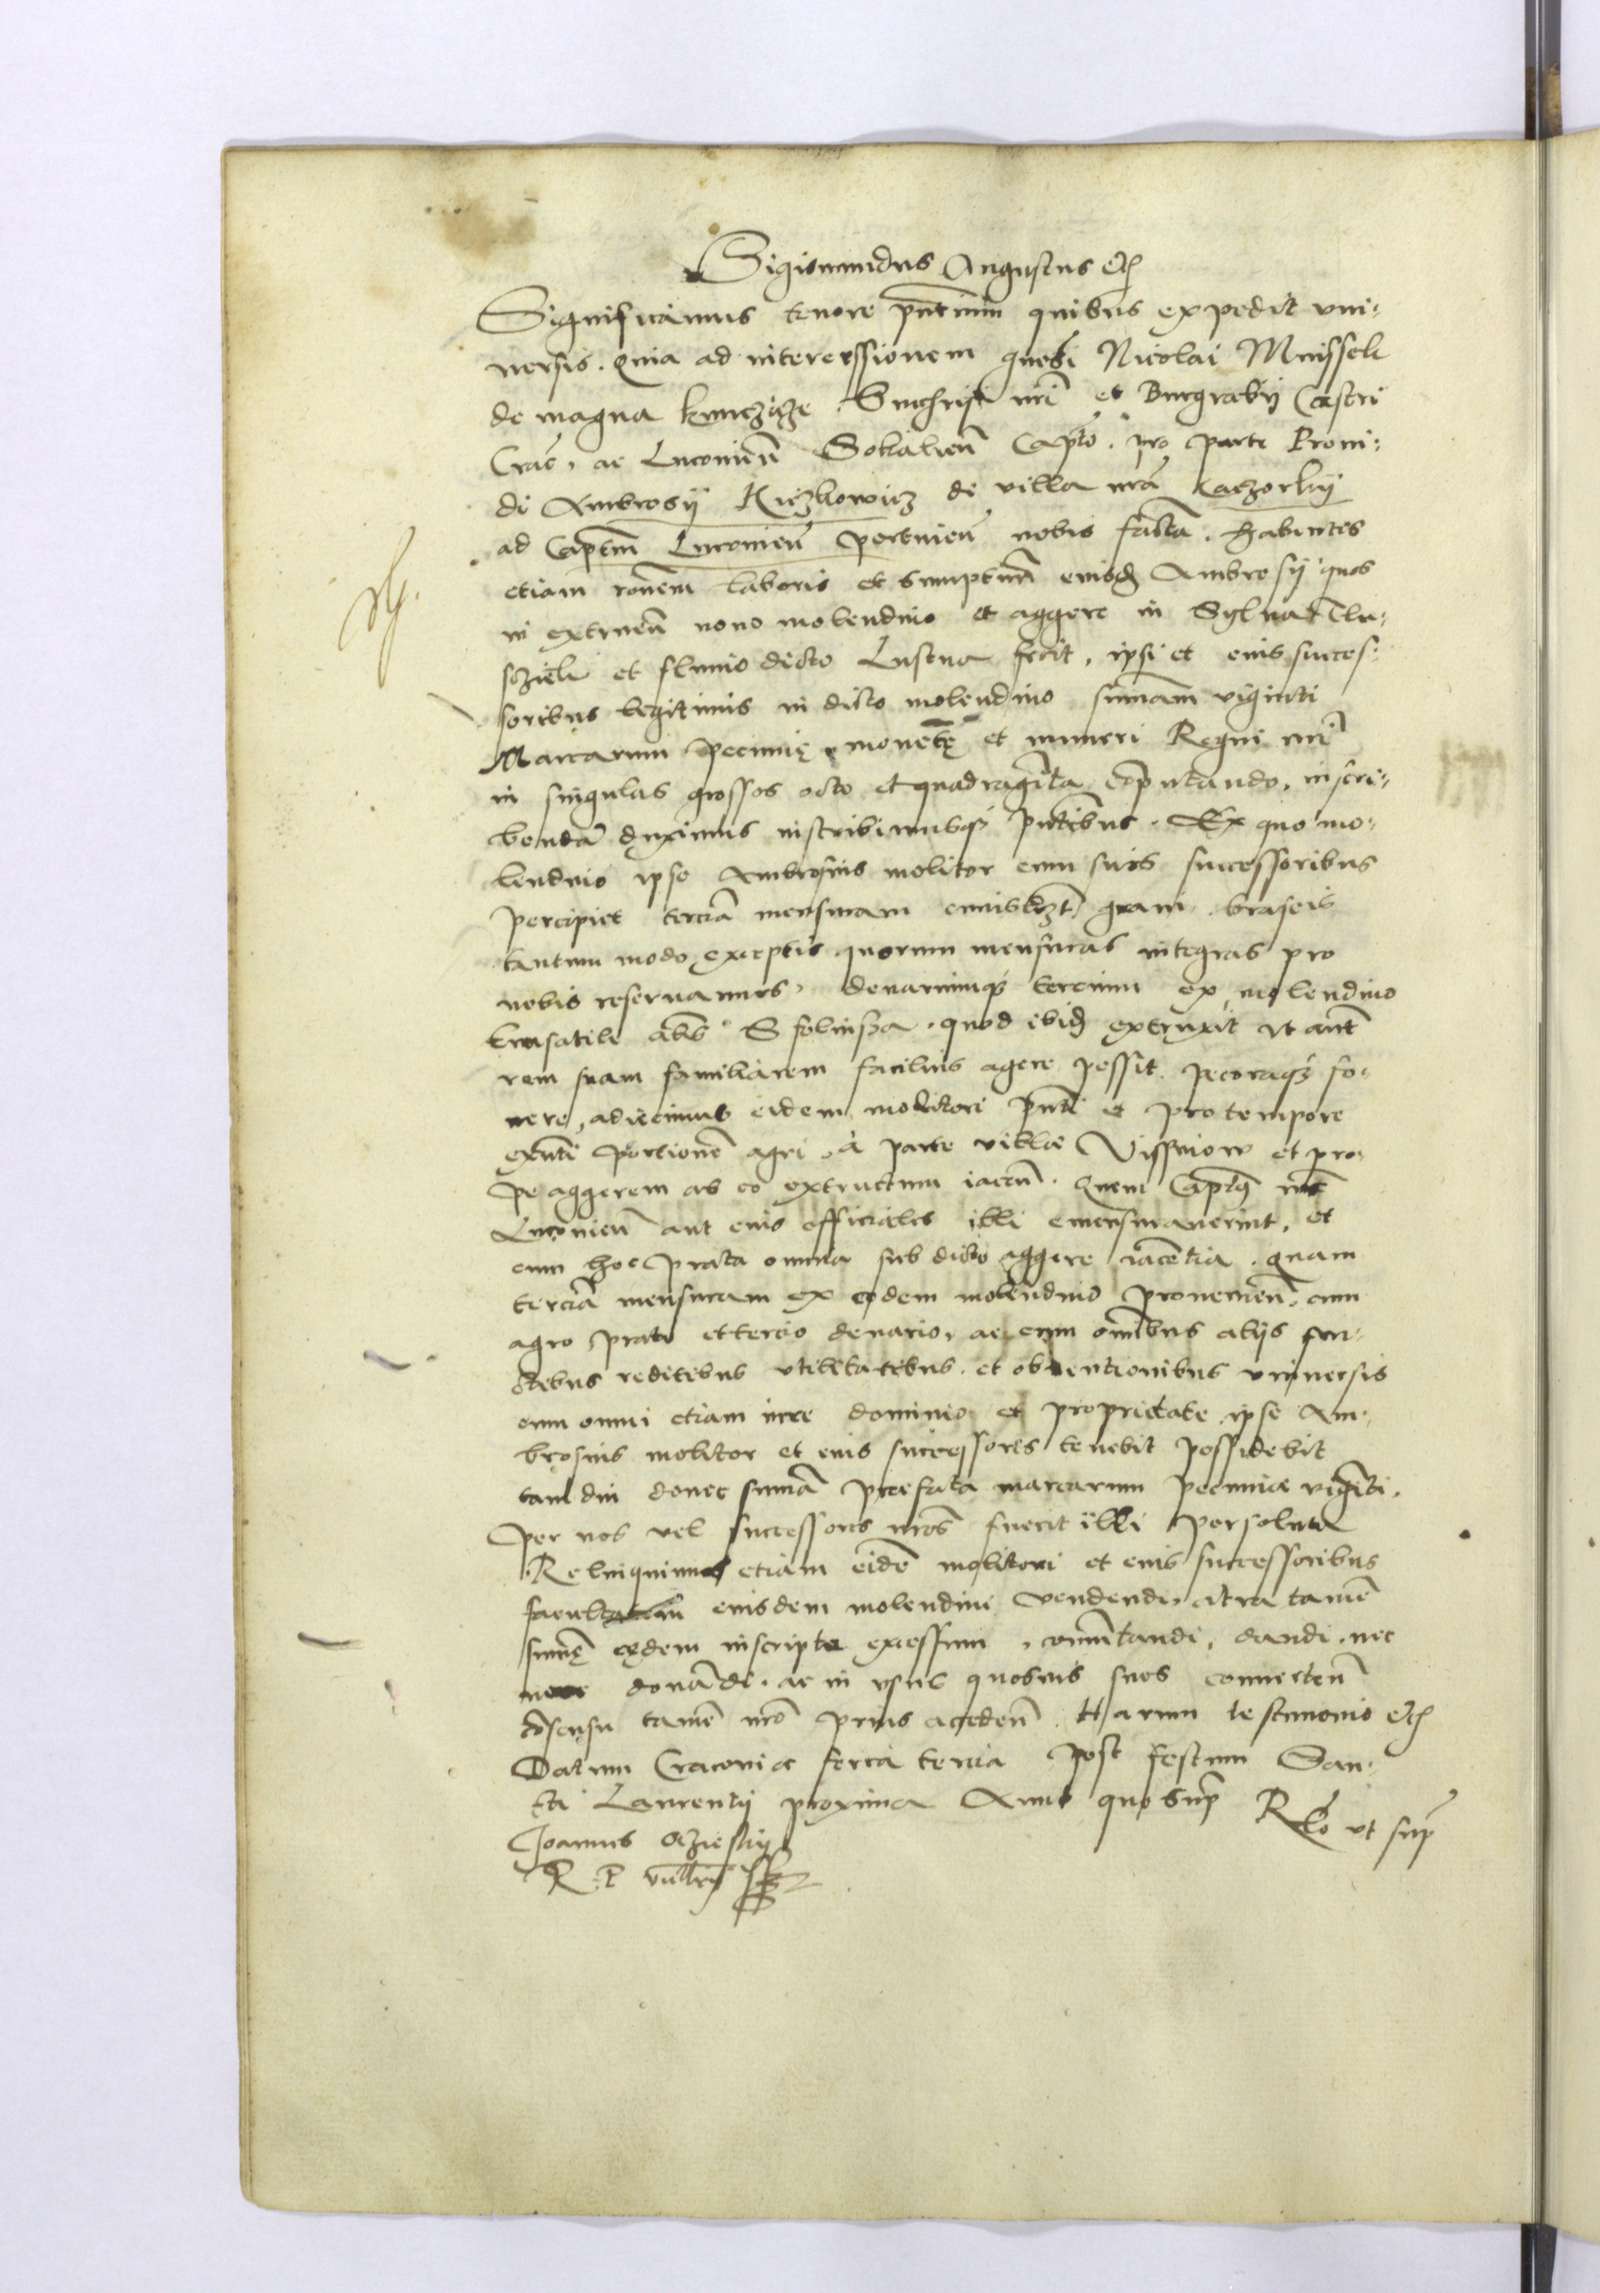 Sigismundus Augustus etc
Significamus tenore pntium quibus expedit vni-
uersis. Quia ad intercessionem gnosi Nicolai Mnissek
de magna kunczicze Succhrisi nri et Burgrabij Castri
Crac. ac Luconien Sokalien Capto. pro parte Proui-
di Ambrosij Kiczkowicz de villa nra Kaczorkij
ad Captm Luconien pertinen nobis facta. Habentes
etiam ronem laboris et sumptum eiusd Ambrosij quos
in extruen nouo molendino et aggere in Sylua Tlu-
sczieli et fluuio dicto Lustna fecit, ipsi et eius succes-
soribus legitimis in dicto molendino summam viginti
Marcarum pecunię monetę et numeri Regni nri
in singulas grossos octo et quadraginta coputando, inscri-
benda duximus inscribimusq pntibus. Ex quo mo-
lendino ipse Ambrosius molitor cum suis successoribus
percipiet tercia mensuram cuiuslibet grani braseis
tantum modo exceptis quorum mensuras integras pro
nobis reseruamus, denariumq tercium ex molendino
trusatile als Sfolusza. quod ibid extruxit vt aut
rem suam familiarem facilius agere possit pecoraq fo-
uere, adiecimus eidem molitori pnti et pro tempore
exnti portione agri à parte villae Vissniow et pro-
pe aggerem ab eo extructum iacen. Quem Captus nr
Luconien aut eius officiales illi emensurauerint, et
cum hoc prata omnia sub dicto aggere iacentia. quam
tercia mensuram ex eodem molendino prouenien. cum
agro prato et tercio denario, ac cum omibus alijs fru-
ctibus reditibus vtilitatibus. et obuentionibus vniuersis
cum omni etiam iure dominio et proprietate ipse Am-
brosius molitor et eius successores tenebit possidebit
tam diu donec suma praefata marcarum pecuniae viginti.
per nos vel successores nros fuerit illi persoluta
Relinquimus etiam eide molitori et eius successoribus
facultatem eiusdem molendini vendendi, citra tame
sumę eędem inscriptae excessum, comutandi, dandi. nec
donadi. ac in vsus quosuis suos conuerten
cosensu tame nro prius acceden. Harum testimonio etc
Datum Cracouiae feria tercia post festum San-
cti Laurentij proxima Anno quo sup Rlo vt sup
Joannes Oczieskij
R. P. vicecllrij sst